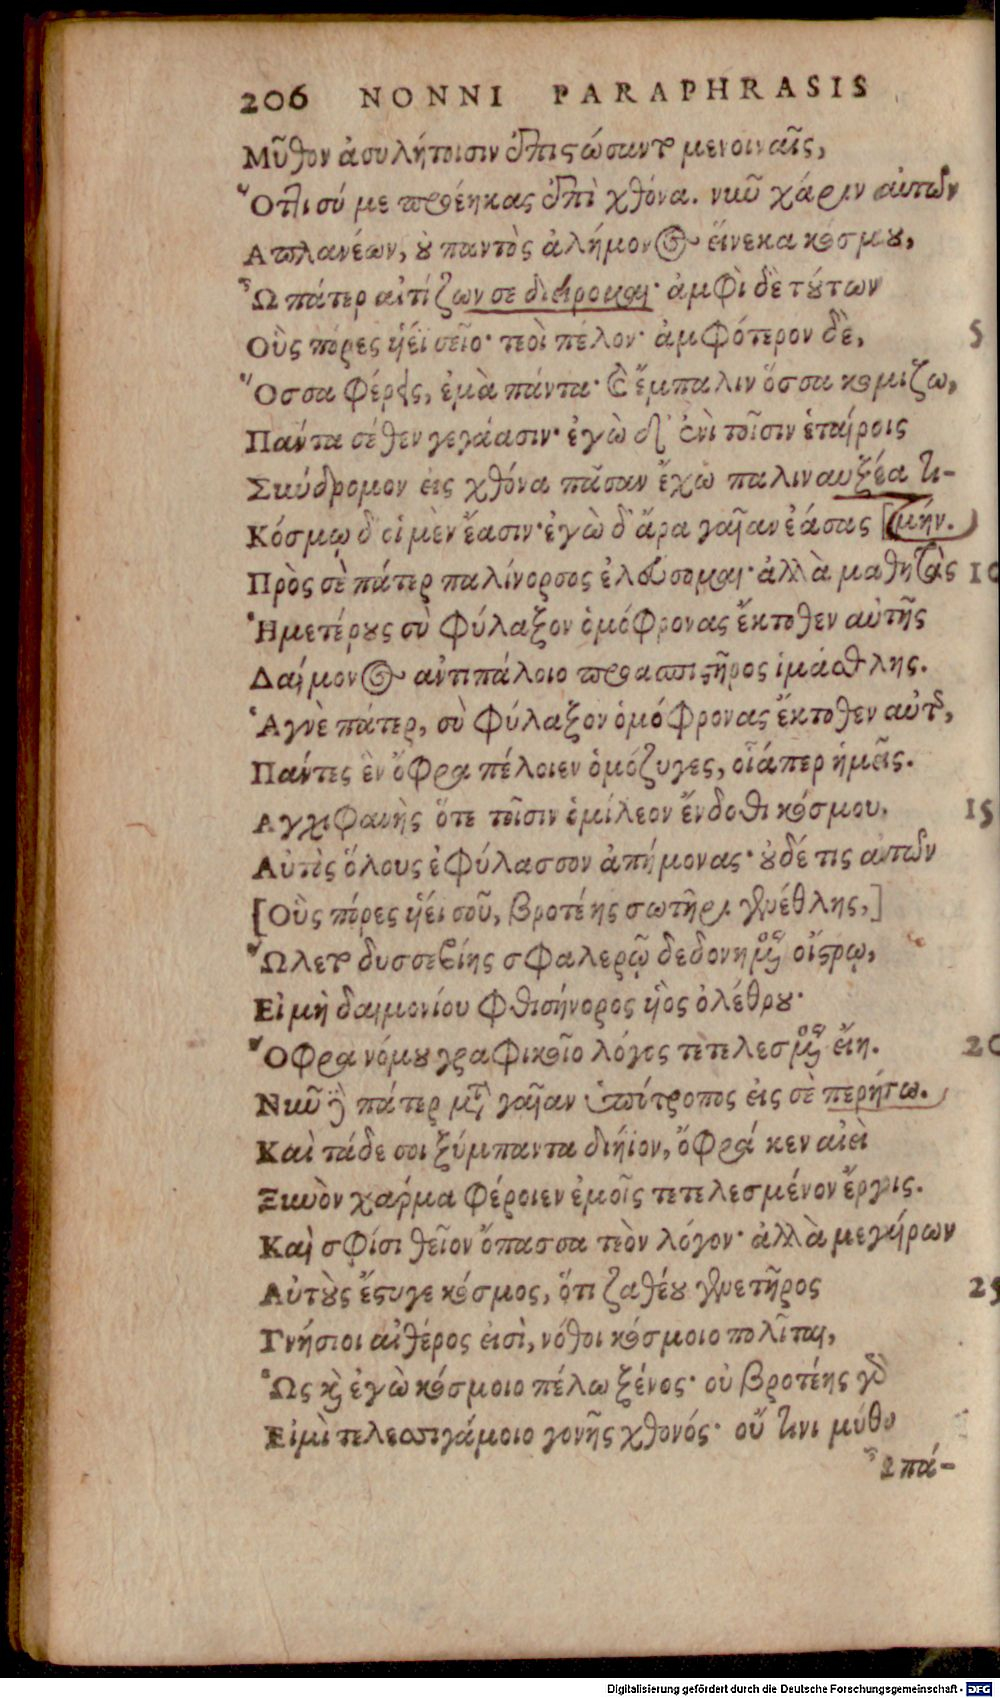 206 NONNI PARAPHRASIS
Μῦθον ἀσυλήτοισιν ἐπιστώσαντο μενοιναῖς,
Ὅττι σύ με προέηκας ἐπὶ χθόνα. νῦν χάριν αὐτῶν
Απλανέων, οὐ παντὸς ἀλήμονος εἵνεκα κόσμου,
Ὦ πάτερ αἰτίζων σε διείρομαι· ἀμφὶ δὲ τούτων
Οὓς πόρες ἠέϊ σεῖο· τεοὶ πέλον· ἀμφότερον δὲ, 5
Ὅσσα φέρεις, ἐμὰ πάντα· καὶ ἔμπαλιν ὅσσα κομιζω,
Πάντα σέθεν γεγάασιν· ἐγὼ δ' ἐνὶ τοῖσιν ἑταίροις
Σκύδρομον εἰς χθόνα πᾶσαν ἔχω παλιναυξέα τι-
Κόσμῳ δ' οἱ μὲν ἔασιν· ἐγὼ δ' ἄρα γαῖαν ἐάσας [μήν.
Πρὸς σὲ πάτερ παλίνορσος ἐλεύσομαι· ἀλλὰ μαθητὰς 10
Ἡμετέρους σὺ φύλαξον ὁμόφρονας ἔκτοθεν αὐτῆς
Δαίμονος ἀντιπάλοιο προασπιστῆρος ἱμάσθλης.
Ἁγνὲ πάτερ, σὺ φύλαξον ὁμόφρονας ἔκτοθεν αὐτοῦ,
Πάντες ἓν ὄφρα πέλοιεν ὁμόζυγες, οἷάπερ ἡμεῖς.
Αγχιφανὴς ὅτε τοῖσιν ὁμίλεον ἔνδοθι κόσμου, 15
Αὐτὸς ὅλους ἐφύλασσον ἀπήμονας· οὐδέ τις αὐτῶν
[Οὓς πόρες ἠέι σοῦ, βροτέης σωτῆρι γενέθλης,]
Ὤλετο δυσσεβίης σφαλερῷ δεδονημένος οἴστρῳ,
Εἰ μὴ δαιμονίου φθισήνορος ἡὸς ὀλέθρου·
Ὄφρα νόμου γραφικοῖο λόγος τετελεσμένος εἴη. 20
Νῦν γὰρ πάτερ μετὰ γαῖαν ὑπότροπος εἰς σὲ περήσω.
Καὶ τάδε σοι ξύμπαντα διήϊον, ὄφρά κεν αἰεὶ
Ξυνὸν χάρμα φέροιεν ἐμοῖς τετελεσμένον ἔργοις.
Καί σφίσι θεῖον ὄπασσα τεὸν λόγον· ἀλλὰ μεγαίρων
Αὐτοὺς ἔστυγε κόσμος, ὅτι ζαθέου γενετῆρος 25
Γνήσιοι αἰθέρος εἰσὶ, νόθοι κόσμοιο πολῖται,
Ὡς καὶ ἐγὼ κόσμοιο πέλω ξένος· οὐ βροτέης γὰρ
Εἰμὶ τελεσσιγάμοιο γονῆς χθονός· οὔ τινι μύθῳ
Ὦ πά-
Digitalisierung gefördert durch die Deutsche Forschungsgemeinschaft - DFG